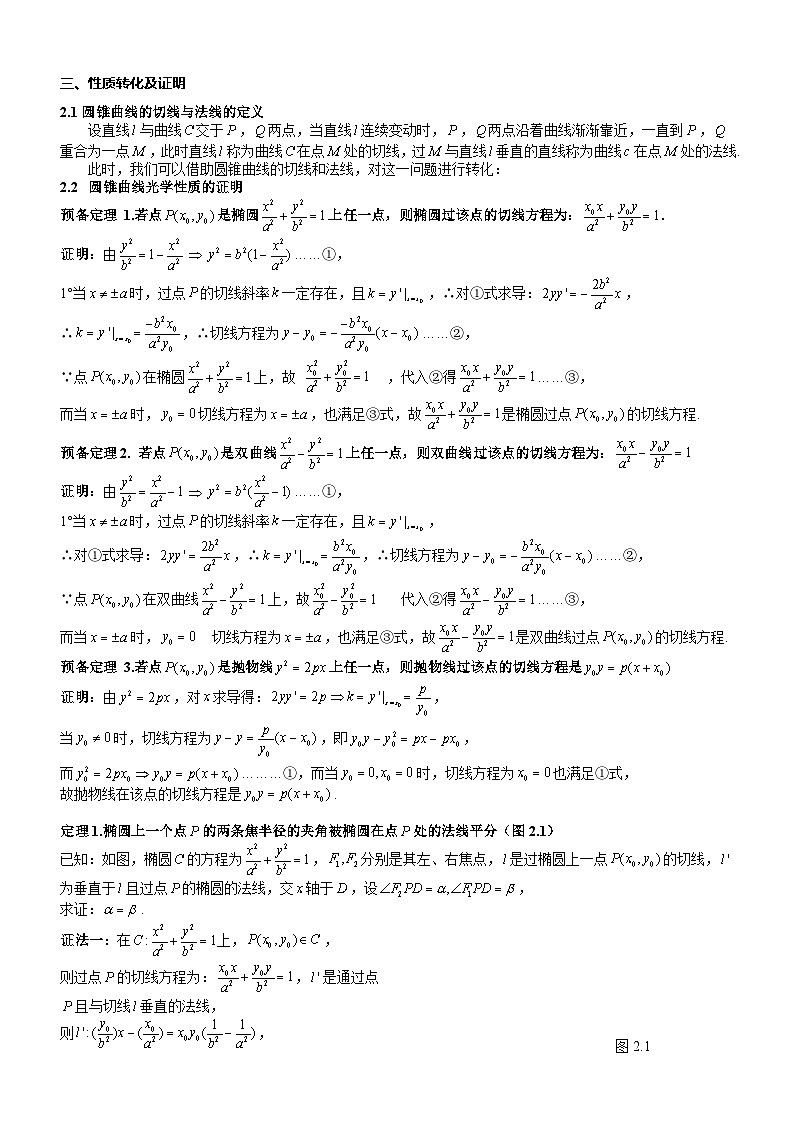 三、性质转化及证明
2.1 圆锥曲线的切线与法线的定义
设直线 l 与曲线 C 交于 P , Q 两点，当直线 l 连续变动时， P , Q 两点沿着曲线渐渐靠近，一直到 P , Q
重合为一点 M ,此时直线 l 称为曲线 C 在点 M 处的切线，过 M 与直线 l 垂直的直线称为曲线 c 在点 M 处的法线.
此时，我们可以借助圆锥曲线的切线和法线，对这一问题进行转化：
2.2 圆锥曲线光学性质的证明
预备定理 1.若点 P(x₀,y₀) 是椭圆 x²/a² + y²/b² = 1 上任一点，则椭圆过该点的切线方程为: x₀x/a² + y₀y/b² = 1.
证明: 由 y²/b² = 1 − x²/a² ⇒ y² = b²(1 − x²/a²) ……①,
1°当 x ≠ ±a 时，过点 P 的切线斜率 k 一定存在，且 k = y'|ₓ₌ₓ₀ ，∴对①式求导: 2yy' = − 2b²/a² x ,
∴ k = y'|ₓ₌ₓ₀ = −b²x₀/a²y₀ ，∴切线方程为 y − y₀ = − −b²x₀/a²y₀ (x − x₀) ……②,
∵点 P(x₀,y₀) 在椭圆 x²/a² + y²/b² = 1 上，故 x₀²/a² + y₀²/b² = 1 ，代入②得 x₀x/a² + y₀y/b² = 1 ……③,
而当 x = ±a 时， y₀ = 0 切线方程为 x = ±a ，也满足③式，故 x₀x/a² + y₀y/b² = 1 是椭圆过点 P(x₀,y₀) 的切线方程.
预备定理 2. 若点 P(x₀,y₀) 是双曲线 x²/a² − y²/b² = 1 上任一点，则双曲线过该点的切线方程为: x₀x/a² − y₀y/b² = 1
证明: 由 y²/b² = x²/a² − 1 ⇒ y² = b²(x²/a² − 1) ……①,
1°当 x ≠ ±a 时，过点 P 的切线斜率 k 一定存在，且 k = y'|ₓ₌ₓ₀ ,
∴对①式求导: 2yy' = 2b²/a² x ，∴ k = y'|ₓ₌ₓ₀ = b²x₀/a²y₀ ，∴切线方程为 y − y₀ = − b²x₀/a²y₀ (x − x₀) ……②,
∵点 P(x₀,y₀) 在双曲线 x²/a² − y²/b² = 1 上，故 x₀²/a² − y₀²/b² = 1 代入②得 x₀x/a² − y₀y/b² = 1 ……③,
而当 x = ±a 时， y₀ = 0 切线方程为 x = ±a ，也满足③式，故 x₀x/a² − y₀y/b² = 1 是双曲线过点 P(x₀,y₀) 的切线方程.
预备定理 3.若点 P(x₀,y₀) 是抛物线 y² = 2px 上任一点，则抛物线过该点的切线方程是 y₀y = p(x + x₀)
证明: 由 y² = 2px ，对 x 求导得: 2yy' = 2p ⇒ k = y'|ₓ₌ₓ₀ = p/y₀ ,
当 y₀ ≠ 0 时，切线方程为 y − y = p/y₀ (x − x₀) ，即 y₀y − y₀² = px − px₀ ,
而 y₀² = 2px₀ ⇒ y₀y = p(x + x₀) ………①，而当 y₀ = 0, x₀ = 0 时，切线方程为 x₀ = 0 也满足①式，
故抛物线在该点的切线方程是 y₀y = p(x + x₀) .
定理 1.椭圆上一个点 P 的两条焦半径的夹角被椭圆在点 P 处的法线平分（图 2.1）
已知: 如图，椭圆 C 的方程为 x²/a² + y²/b² = 1 ， F₁,F₂ 分别是其左、右焦点， l 是过椭圆上一点 P(x₀,y₀) 的切线， l'
为垂直于 l 且过点 P 的椭圆的法线，交 x 轴于 D ，设 ∠F₂PD = α,∠F₁PD = β ,
求证: α = β .
证法一: 在 C: x²/a² + y²/b² = 1 上， P(x₀,y₀)∈C ,
则过点 P 的切线方程为: x₀x/a² + y₀y/b² = 1 ， l' 是通过点
P 且与切线 l 垂直的法线，
则 l': (y₀/b²)x − (x₀/a²) = x₀y₀(1/b² − 1/a²) ,
图 2.1